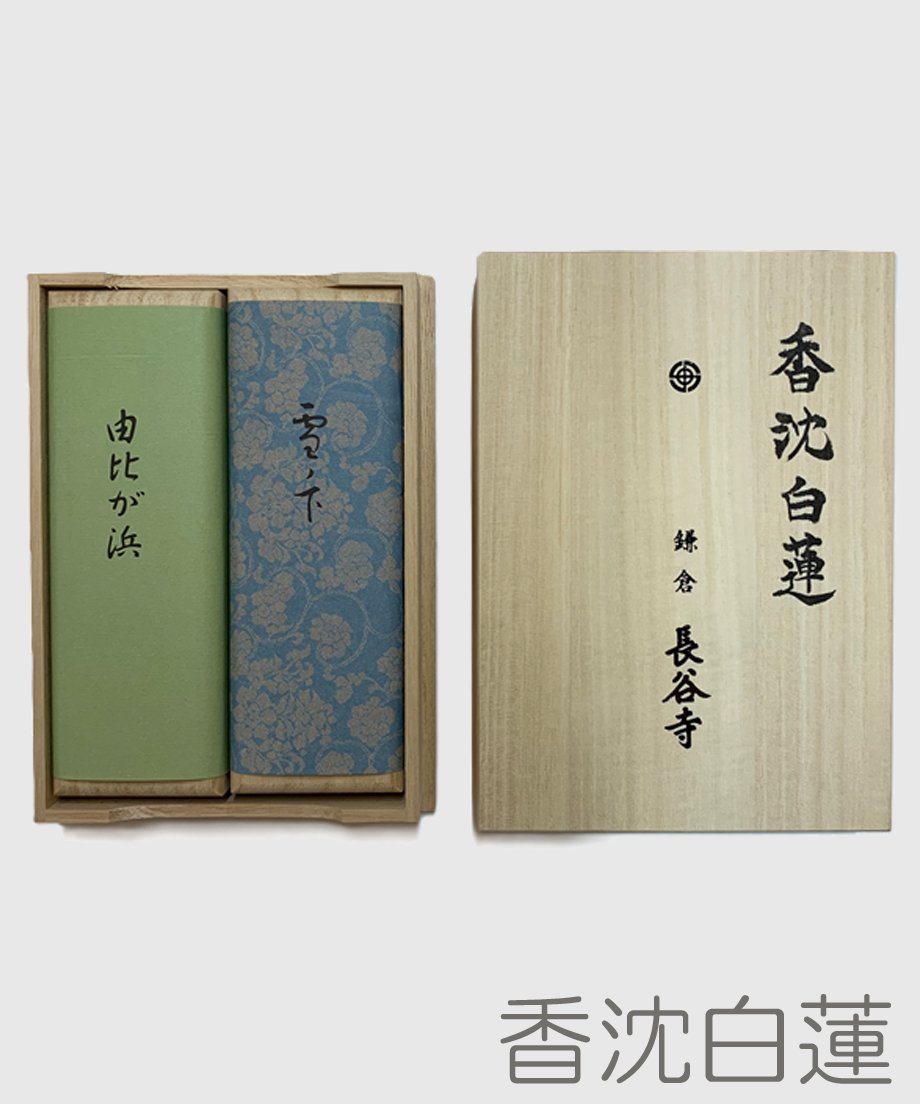 由比が浜
雪ノ下
香沈白蓮
鎌倉
長谷寺
香沈白蓮